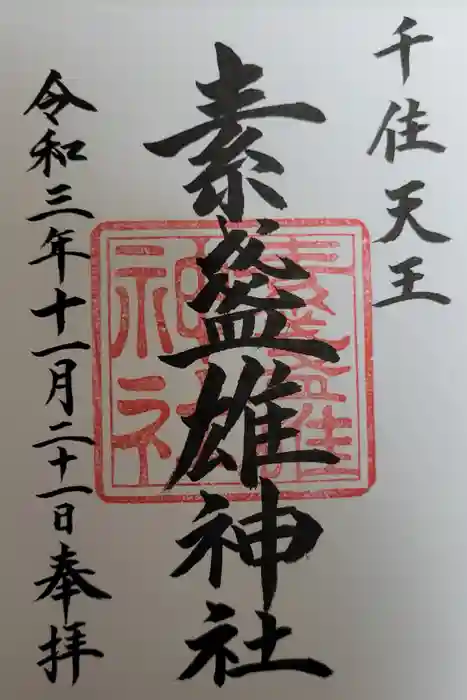 千住天王
素盞雄神社
令和三年十一月二十一日奉拝
素盞雄神社